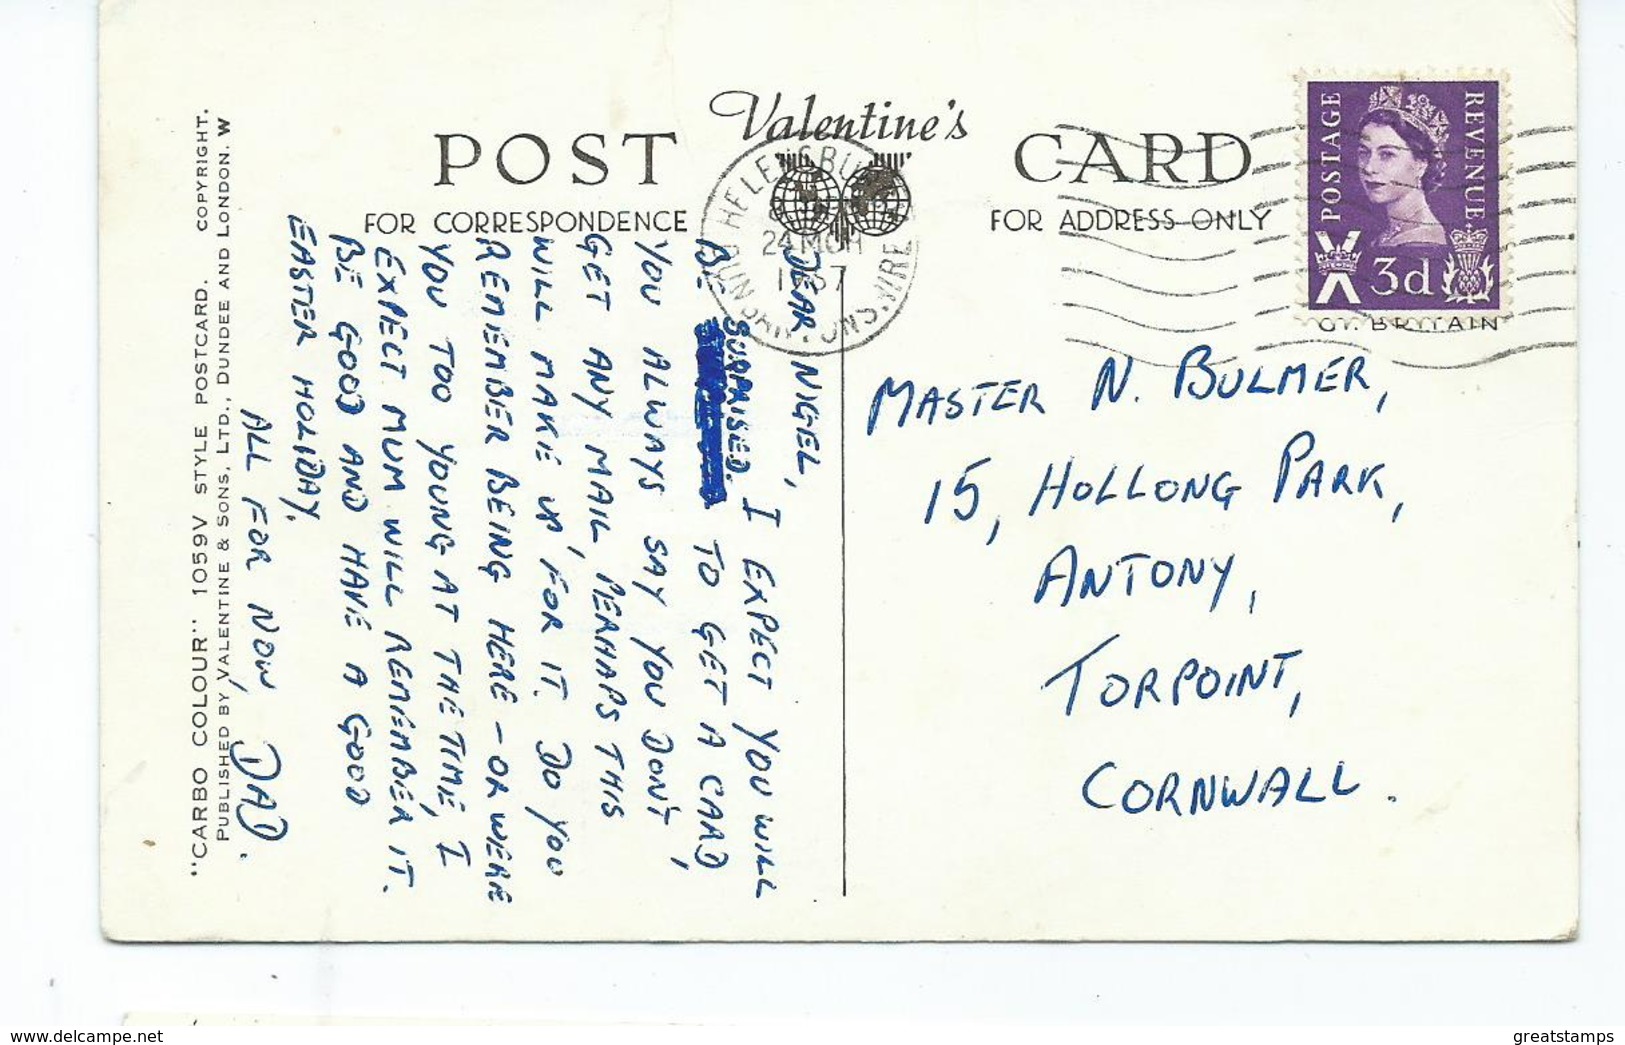 Valentine's
POST CARD
FOR CORRESPONDENCE
FOR ADDRESS ONLY
HELENSBU
24 MCH
1967
POSTAGE
REVENUE
3d
GT. BRITAIN
DEAR NIGEL,
I EXPECT YOU WILL
BE SURPRISED. TO GET A CARD,
YOU ALWAYS SAY YOU DON'T
GET ANY MAIL, PERHAPS THIS
WILL MAKE UP FOR IT. DO YOU
REMEMBER BEING HERE - OR WERE
YOU TOO YOUNG AT THE TIME, I
EXPECT MUM WILL REMEMBER IT.
BE GOOD AND HAVE A GOOD
EASTER HOLIDAY.
ALL FOR NOW,
DAD.
MASTER N. BULMER,
15, HOLLONG PARK,
ANTONY,
TORPOINT,
CORNWALL.
"CARBO COLOUR" 1059V STYLE POSTCARD. COPYRIGHT.
PUBLISHED BY VALENTINE & SONS, LTD., DUNDEE AND LONDON. W
delcampe.net
greatstamps